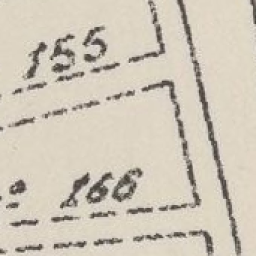 155
166